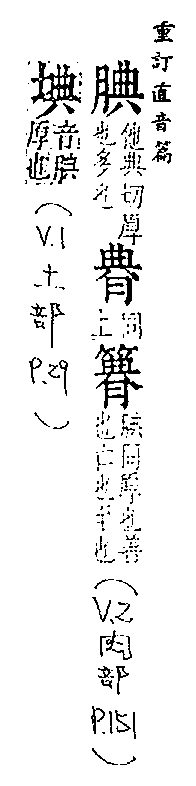 重訂直音篇
腆他典切厚也多也 𦚈同上 簪膳同厚也善也亡也主也(V.2 肉部 P.151)
㙉音腆厚也(V.1 土部 P.29)